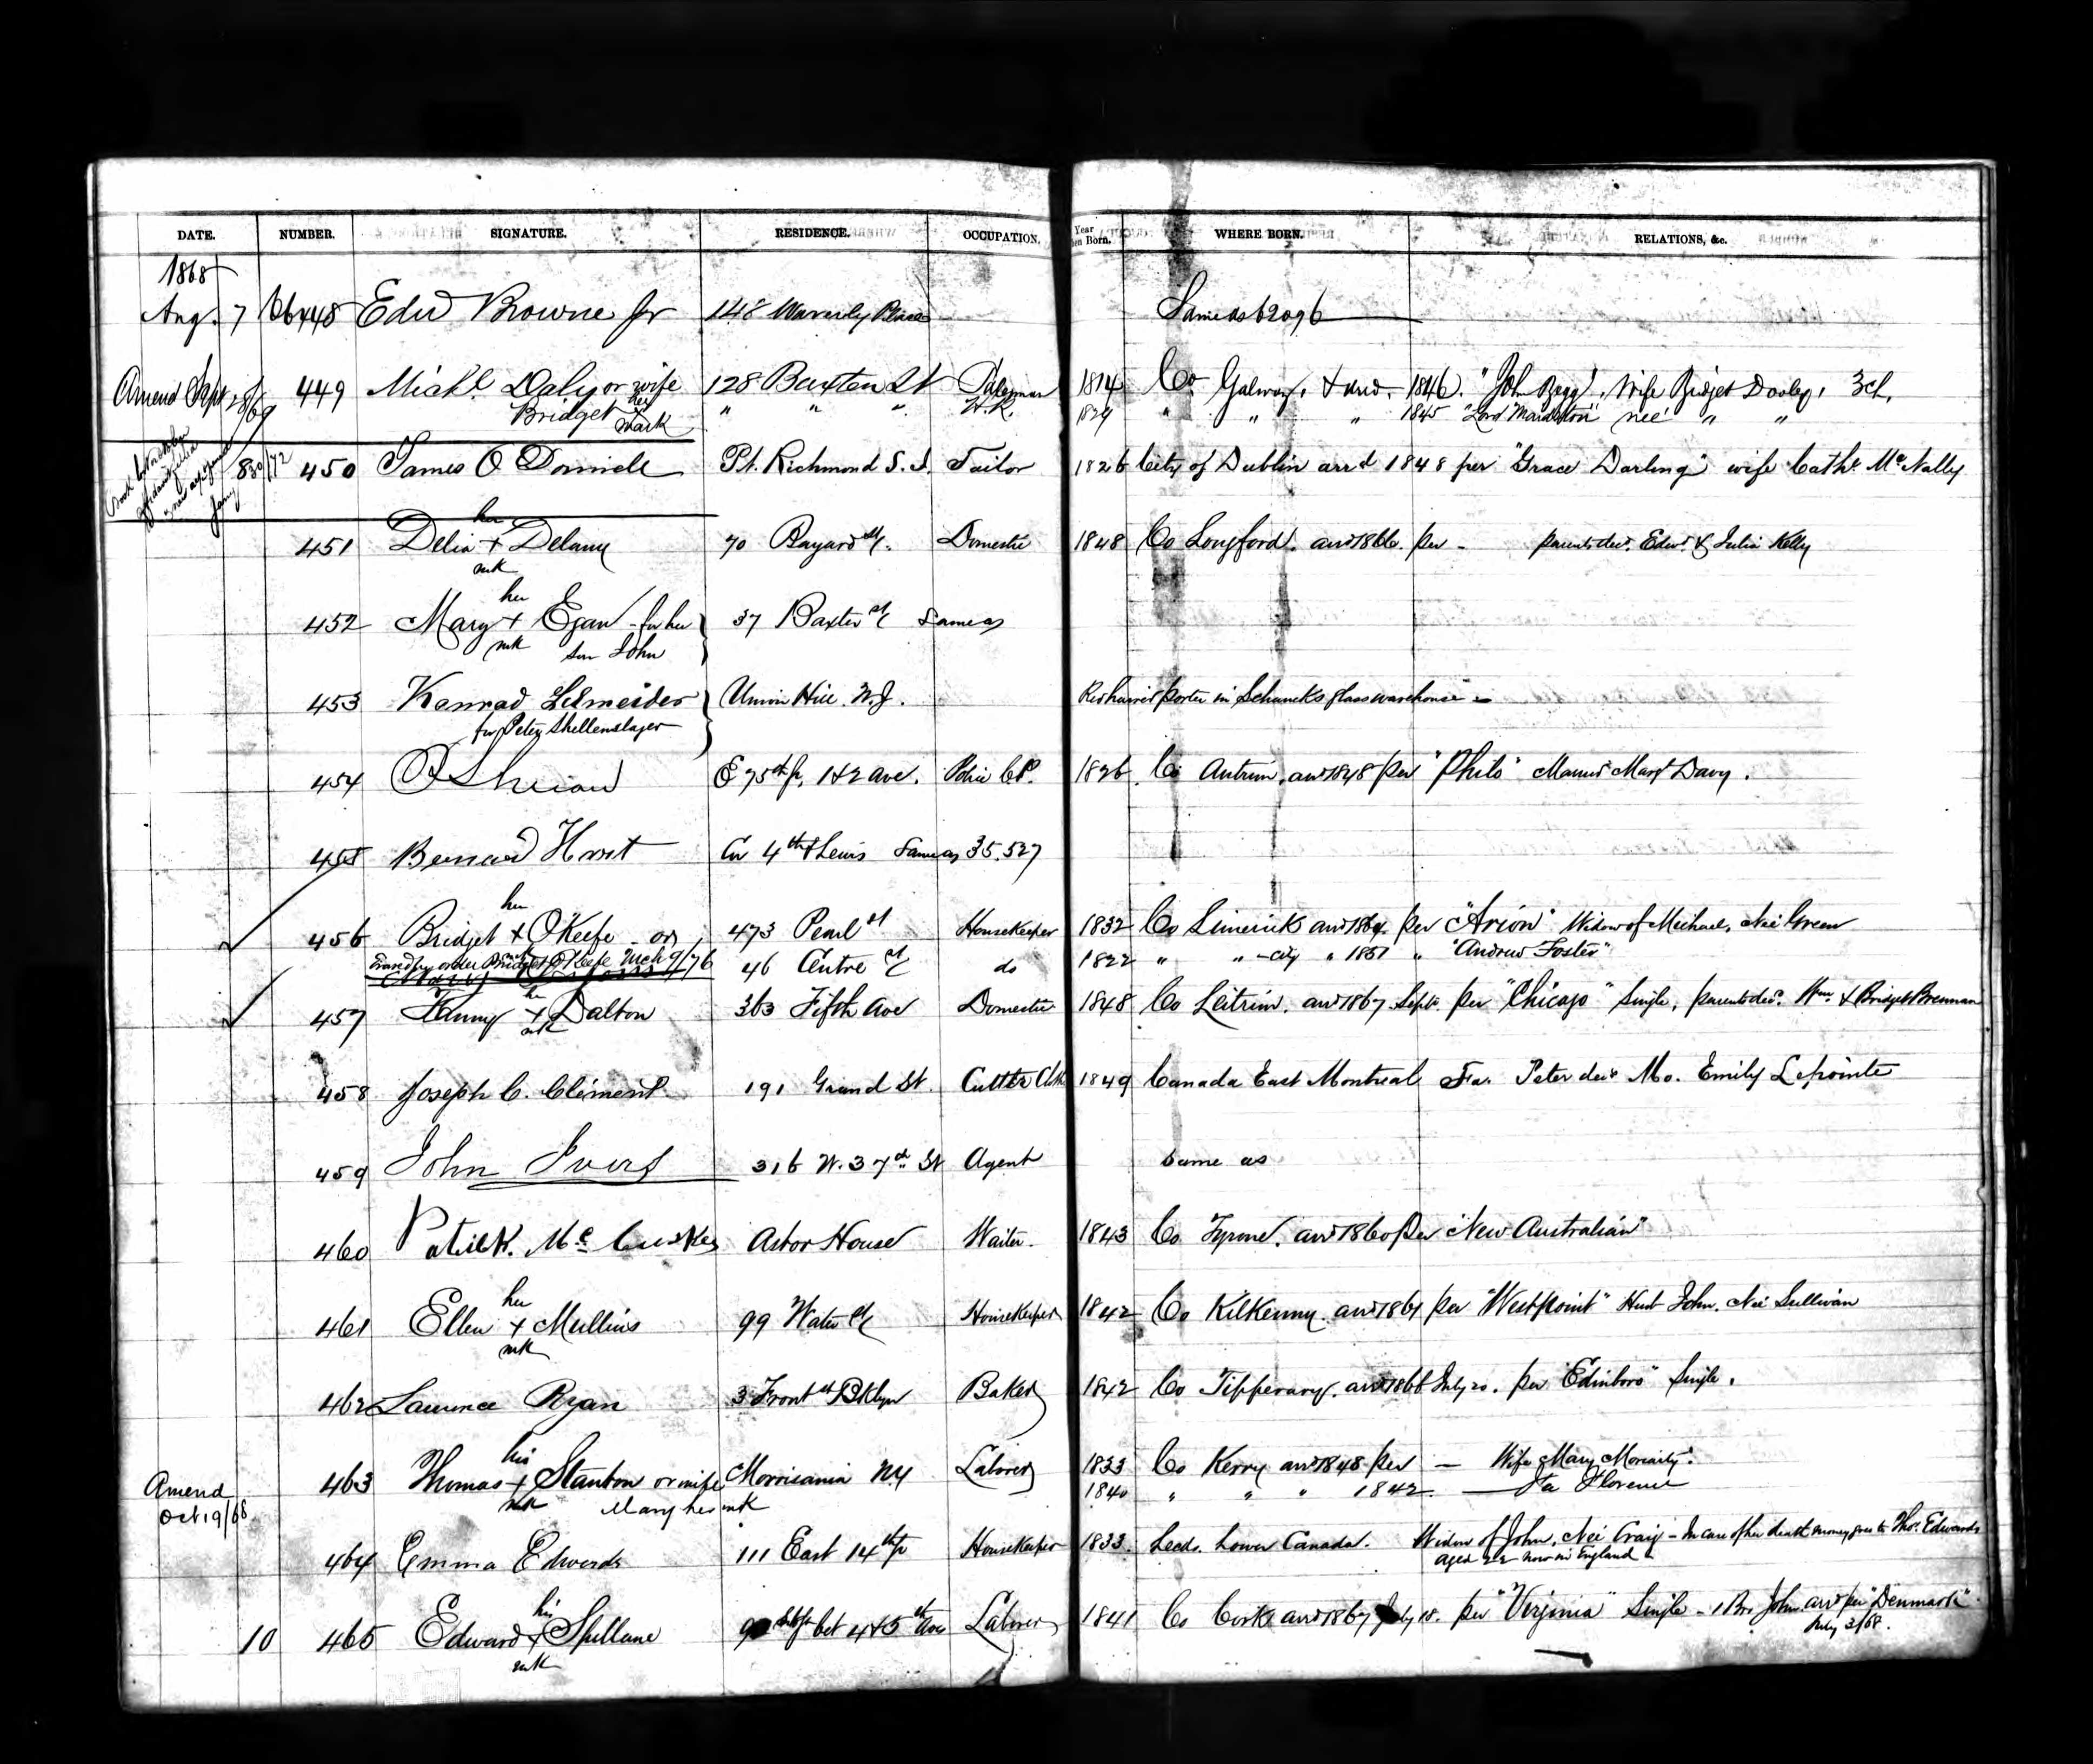 DATE. NUMBER. SIGNATURE. RESIDENCE. OCCUPATION. Year Born. WHERE BORN. RELATIONS, &c.
1868
Aug. 7 448 Edwd Browne Jr 148 Waverly Place Same as 62096
Amend Sept 28/69 449 Michl Daly or wife 128 Baxter St 1814 Co Galway, arrd 1846. "John Bagg", Wife Bridget Dooley, 3 ch.
Bridget her mark " " " H.K. 1829 " " " 1845 "Lord Maidstone" nee " "
450 James O Donnell Pt. Richmond S. I. Tailor 1826 City of Dublin arrd 1848 per "Grace Darling" wife Cathe McNally
her
451 Delia + Delany 70 Bayard st. Domestic 1848 Co Longford. arrd 1866. per - parents decd. Edwd & Julia Kelly
mk
her
452 Mary + Egan - for her 37 Baxter st Same as
mk son John
453 Konrad Schneider Union Hill N.J. porter in Schancks glass warehouse
for Peter Shellenslager
454 E 75th st, 1 & 2 ave. Police Cp. 1826 Co Antrim. arrd 1848 per "Philo" Married Margt Davy.
455 Bernard Hart Cor 4th & Lewis Same as 35,527
her
456 Bridget + O'Keefe or 473 Pearl st Housekeeper 1832 Co Limerick arrd 1864 per "Arion" Widow of Michael, Nee Green
Transf by order Bridget O'Keefe Mch 9/76 46 Centre st do 1822 " " - city " 1851 " "Andrew Foster"
her
457 Fanny + Dalton 363 Fifth Ave Domestic 1848 Co Leitrim. arrd 1867 Sept. per "Chicago" Single, parents decd. Wm. & Bridget Brennan
mk
458 Joseph C. Clément 191 Grand St. Cutter 1849 Canada East Montreal Fa. Peter decd Mo. Emily Lepointe
459 John Ivers 316 W. 37th St Agent Same as
460 Patrick. Mc Cusker Astor House Waiter. 1843 Co Tyrone. arrd 1860 per "New Australian"
her
461 Ellen + Mullins 99 Water st Housekeeper 1842 Co Kilkenny. arrd 1861 per "Westpoint" Husb John. Nee Sullivan
mk
462 Laurence Ryan 3 Front st Bklyn Baker 1842 Co Tipperary. arrd 1866 July 20. per "Edinboro" Single.
his
463 Thomas + Stanton or wife Morrisania N.Y Laborer 1833 Co Kerry arrd 1848 per — Wife Mary Moriarty.
Amend Oct 19/68 mk Mary her mk 1840 " " " 1842 — Fa Florence
464 Emma Edwards 111 East 14th st Housekeeper 1833. Leeds. Lower Canada. Widow of John, Nee Craig - In case of her death money goes to Thos. Edwards
aged 22 now in England
his
10 465 Edward + Spillane bet 4 & 5th Aves Laborer 1841 Co Cork arrd 1867 July 18. per "Virginia" Single - 1 Bro. John. arrd per "Denmark"
mk July 3/68.